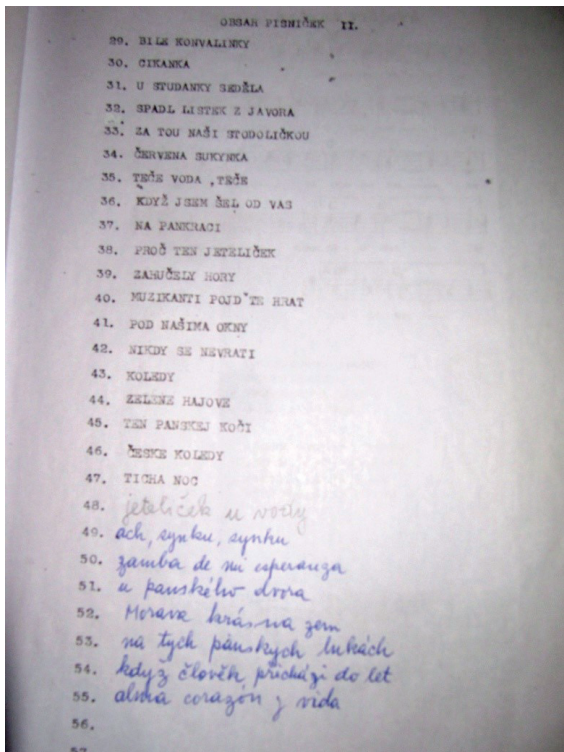 OBSAH PISNIČEK II.
29. BILE KONVALINKY
30. CIKANKA
31. U STUDANKY SEDĚLA
32. SPADL LISTEK Z JAVORA
33. ZA TOU NAŠI STODOLIČKOU
34. ČERVENA SUKYNKA
35. TEČE VODA ,TEČE
36. KDYŽ JSEM ŠEL OD VAS
37. NA PANKRACI
38. PROČ TEN JETELIČEK
39. ZAHUČELY HORY
40. MUZIKANTI POJD'TE HRAT
41. POD NAŠIMA OKNY
42. NIKDY SE NEVRATI
43. KOLEDY
44. ZELENE HAJOVE
45. TEN PANSKEJ KOČI
46. ČESKE KOLEDY
47. TICHA NOC
48. jetelíček u vody
49. ach, synku, synku
50. zamba de mi esperanza
51. u panského dvora
52. Morava krásna zem
53. na tych pánskych lukách
54. když člověk přicházi do let
55. alma corazón y vida
56.
57.